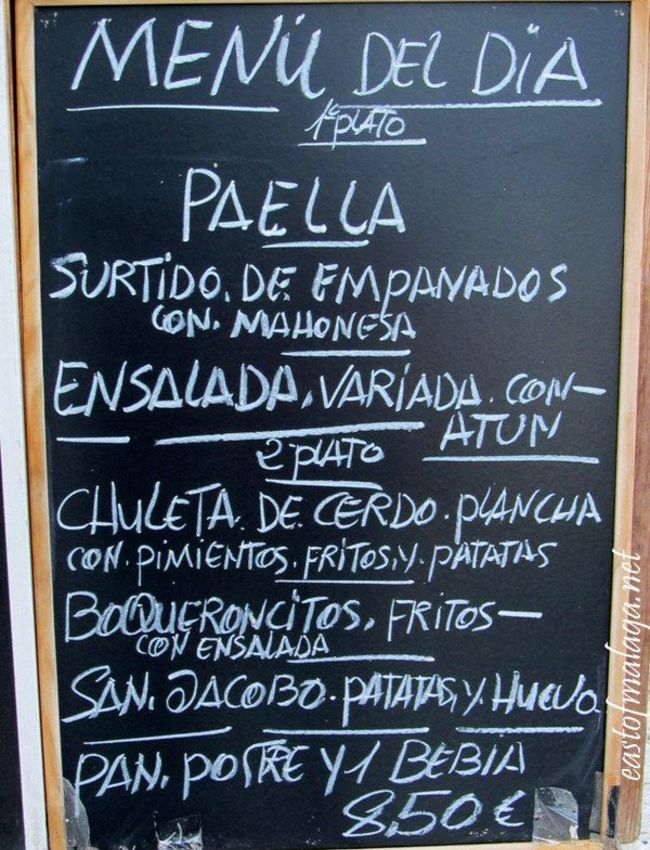 MENÚ DEL DIA
1º PLATO
PAELLA
SURTIDO. DE. EMPANADOS
CON. MAHONESA
ENSALADA. VARIADA. CON-
ATUN
2 PLATO
CHULETA. DE. CERDO. PLANCHA
CON. PIMIENTOS. FRITOS, Y. PATATAS
BOQUERONCITOS. FRITOS-
CON ENSALADA
SAN. JACOBO. PATATAS, Y. HUEVO
PAN. POSTRE Y 1 BEBIA
8,50 €
eastofmalaga.net